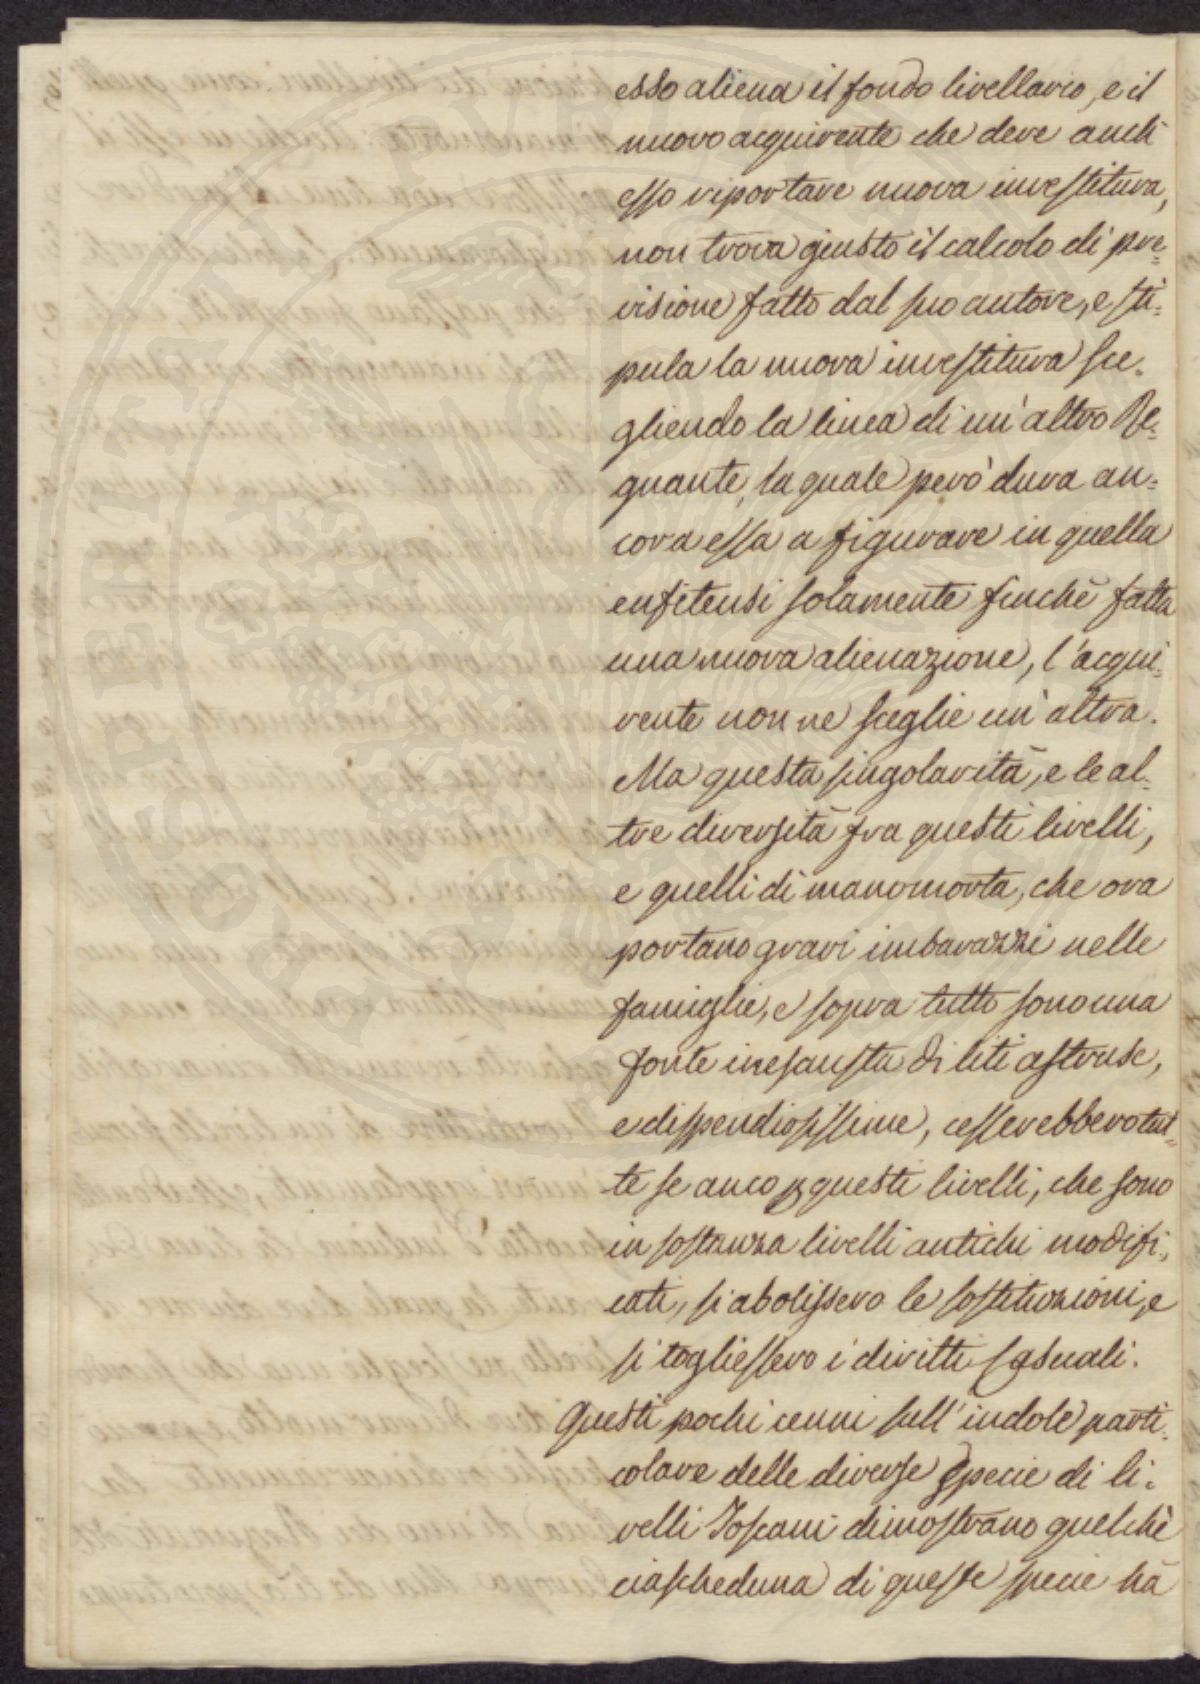 esso aliena il fondo livellario, e il
nuovo acquirente che deve anch'
esso riportare nuova investitura,
non trova giusto il calcolo di pre=
visione fatto dal suo autore, e sti=
pula la nuova investitura sce=
gliendo la linea di un'altro Re=
gnante, la quale però dura an=
cora essa a figurare in quella
enfiteusi solamente finchè fatta
una nuova alienazione, l'acqui=
rente non ne sceglie un'altra.
Ma questa singolarità, e le al=
tre diversità fra questi livelli,
e quelli di manomorta, che ora
portano gravi imbarazzi nelle
famiglie, e sopra tutto sono una
fonte inesausta di liti astruse,
e dispendiosissime, cesserebbero tut=
te se anco p questi livelli, che sono
in sostanza livelli antichi modifi=
cati, si abolissero le sostituzioni, e
si togliessero i diritti casuali.
Questi pochi cenni sull'indole parti=
colare delle diverse specie di li=
velli Toscani dimostrano quelchè
ciascheduna di queste specie hà
POSPERITATI PUBLICAE